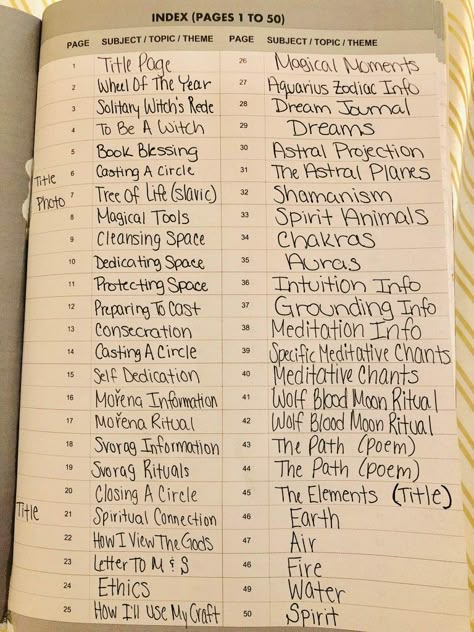 INDEX (PAGES 1 TO 50)
PAGE SUBJECT / TOPIC / THEME
1 Title Page
2 Wheel Of The Year
3 Solitary Witch's Rede
4 To Be A Witch
5 Book Blessing
Title 6 Casting A Circle
Photo 7 Tree Of Life (Slavic)
8 Magical Tools
9 Cleansing Space
10 Dedicating Space
11 Protecting Space
12 Preparing To Cast
13 Consecration
14 Casting A Circle
15 Self Dedication
16 Mořena Information
17 Mořena Ritual
18 Svorag Information
19 Svorag Rituals
20 Closing A Circle
Title 21 Spiritual Connection
22 How I View The Gods
23 Letter To M & S
24 Ethics
25 How I'll Use My Craft
PAGE SUBJECT / TOPIC / THEME
26 Magical Moments
27 Aquarius Zodiac Info
28 Dream Journal
29 Dreams
30 Astral Projection
31 The Astral Planes
32 Shamanism
33 Spirit Animals
34 Chakras
35 Auras
36 Intuition Info
37 Grounding Info
38 Meditation Info
39 Specific Meditative Chants
40 Meditative Chants
41 Wolf Blood Moon Ritual
42 Wolf Blood Moon Ritual
43 The Path (Poem)
44 The Path (poem)
45 The Elements (Title)
46 Earth
47 Air
48 Fire
49 Water
50 Spirit